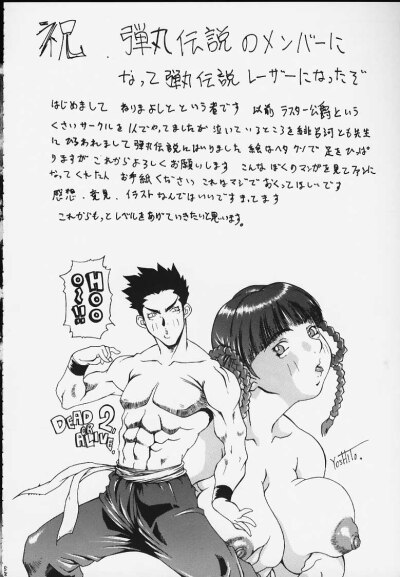 祝 弾丸伝説のメンバーに
なって弾丸伝説レーザーになったぞ
はじめまして ねりまよしとという者です 以前 ラスター公爵という
くさいサークルを1人でやってましたが泣いているところを緋呂河とも先生
にかるあれまして弾丸伝説にはいりました 絵はヘタクソで足をひっぱ
りますが これからよろしくお願いします こんなぼくのマンガを見てファンに
なってくれた人 お手紙ください これはマジでおくってほしいです
感想、意見、イラストなんでもいいですまってます
これからもっとレベルをあげていきたいと思います。
HOO
O〜!!
DEAD OR ALIVE 2
YoshiTo.